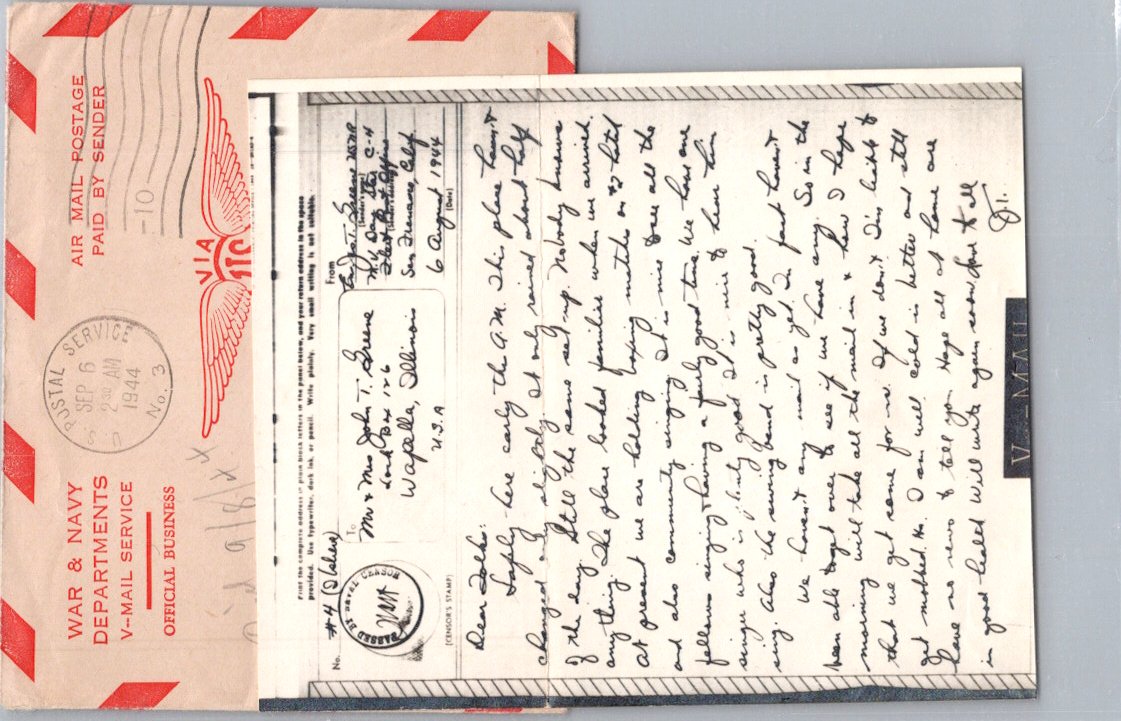 WAR & NAVY
DEPARTMENTS
V-MAIL SERVICE
OFFICIAL BUSINESS
U.S. POSTAL SERVICE
SEP 6
2 30 AM
1944
No. 3
-10-
AIR MAIL POSTAGE
PAID BY SENDER
VIA
Print the complete address in plain block letters in the panel below, and your return address in the space
provided. Use typewriter, dark ink, or pencil. Write plainly. Very small writing is not suitable.
No. #4
PASSED BY NAVAL CENSOR
(CENSOR'S STAMP)
To
Mr & Mrs John T. Greene
Lock Box 126
Wapella, Illinois
U.S.A
From
Greene USNR
(Sender's name)
C-4
Fleet Post Office
San Francisco, Calif.
6 August 1944
(Date)
Dear Folks:
Safely here early the A.M. This place hasn't
changed any slightly. It only rained about half
of the day. Still the same set up. Nobody knows
anything. The place looked familiar when we arrived.
At present we are holding boxing matches on #2 hatch
and also community singing. It is nice to see all the
fellows singing & having a fairly good time. We have one
singer who is pretty good. It is nice to hear him
sing. Also the swing band is pretty good.
We haven't any mail as yet. In fact haven't
been able to get over to see if we have any. So in the
morning will take all the mail in & how I hope
that we get some for us. If we don't I'm liable to
get mobbed. Ha. I am well, cold is better and still
have no news to tell you. Hope all at home are
in good health. Will write again soon. Love to all
V-MAIL